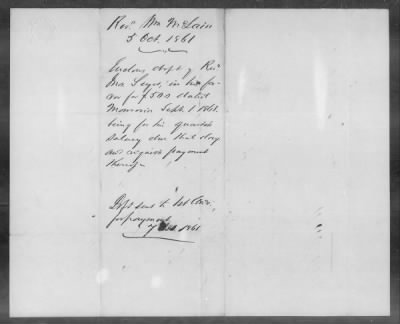 Revd. Wm McLain
5 Oct. 1861
Encloses dft of Rev
Mr. Seys, in his fa-
vor for $500 dated
Monrovia Sept. 1. 1861.
being for his quarter's
salary due that day
and requests payment
thereof.
Dft sent to 1st Comr.
for payment
7 1861